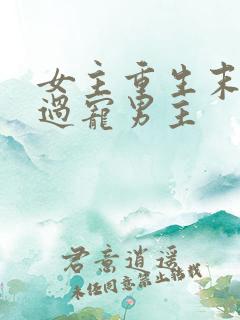 女主重生末
過寵男主
君意逍遥
未经同意禁止转载